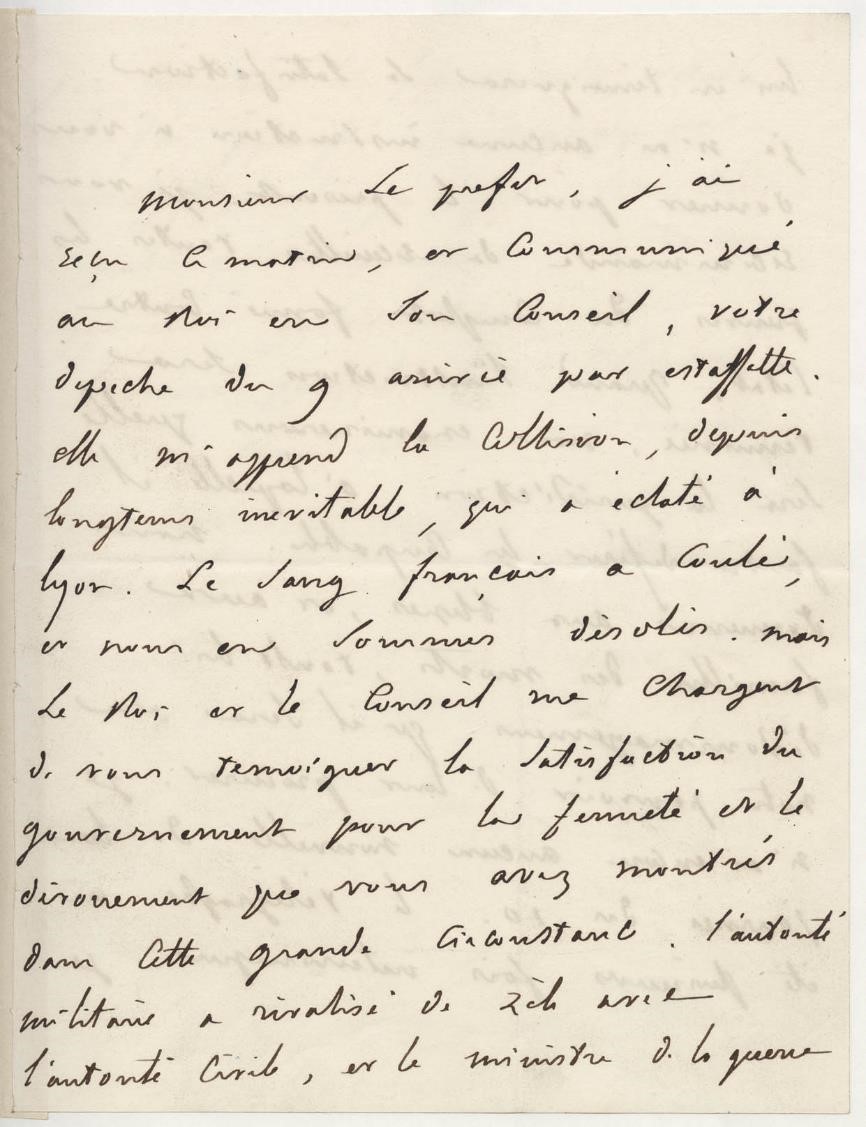 Monsieur Le prefet, j'ai
reçu ce matin, et Communiqué
au Roi en Son Conseil, votre
depeche du 9 arrivée par estaffette.
elle m'apprend la Collision, depuis
longtems inevitable, qui a éclaté à
lyon. Le Sang français a Coulé,
et nous en Sommes désolés. mais
Le Roi et le Conseil me Chargent
de vous temoigner la Satisfaction du
gouvernement pour la fermeté et le
dévouement que vous avez montrés
dans Cette grande Circonstance. l'autorité
militaire a rivalisé de zèle avec
l'autorité Civile, et le ministre de la guerre